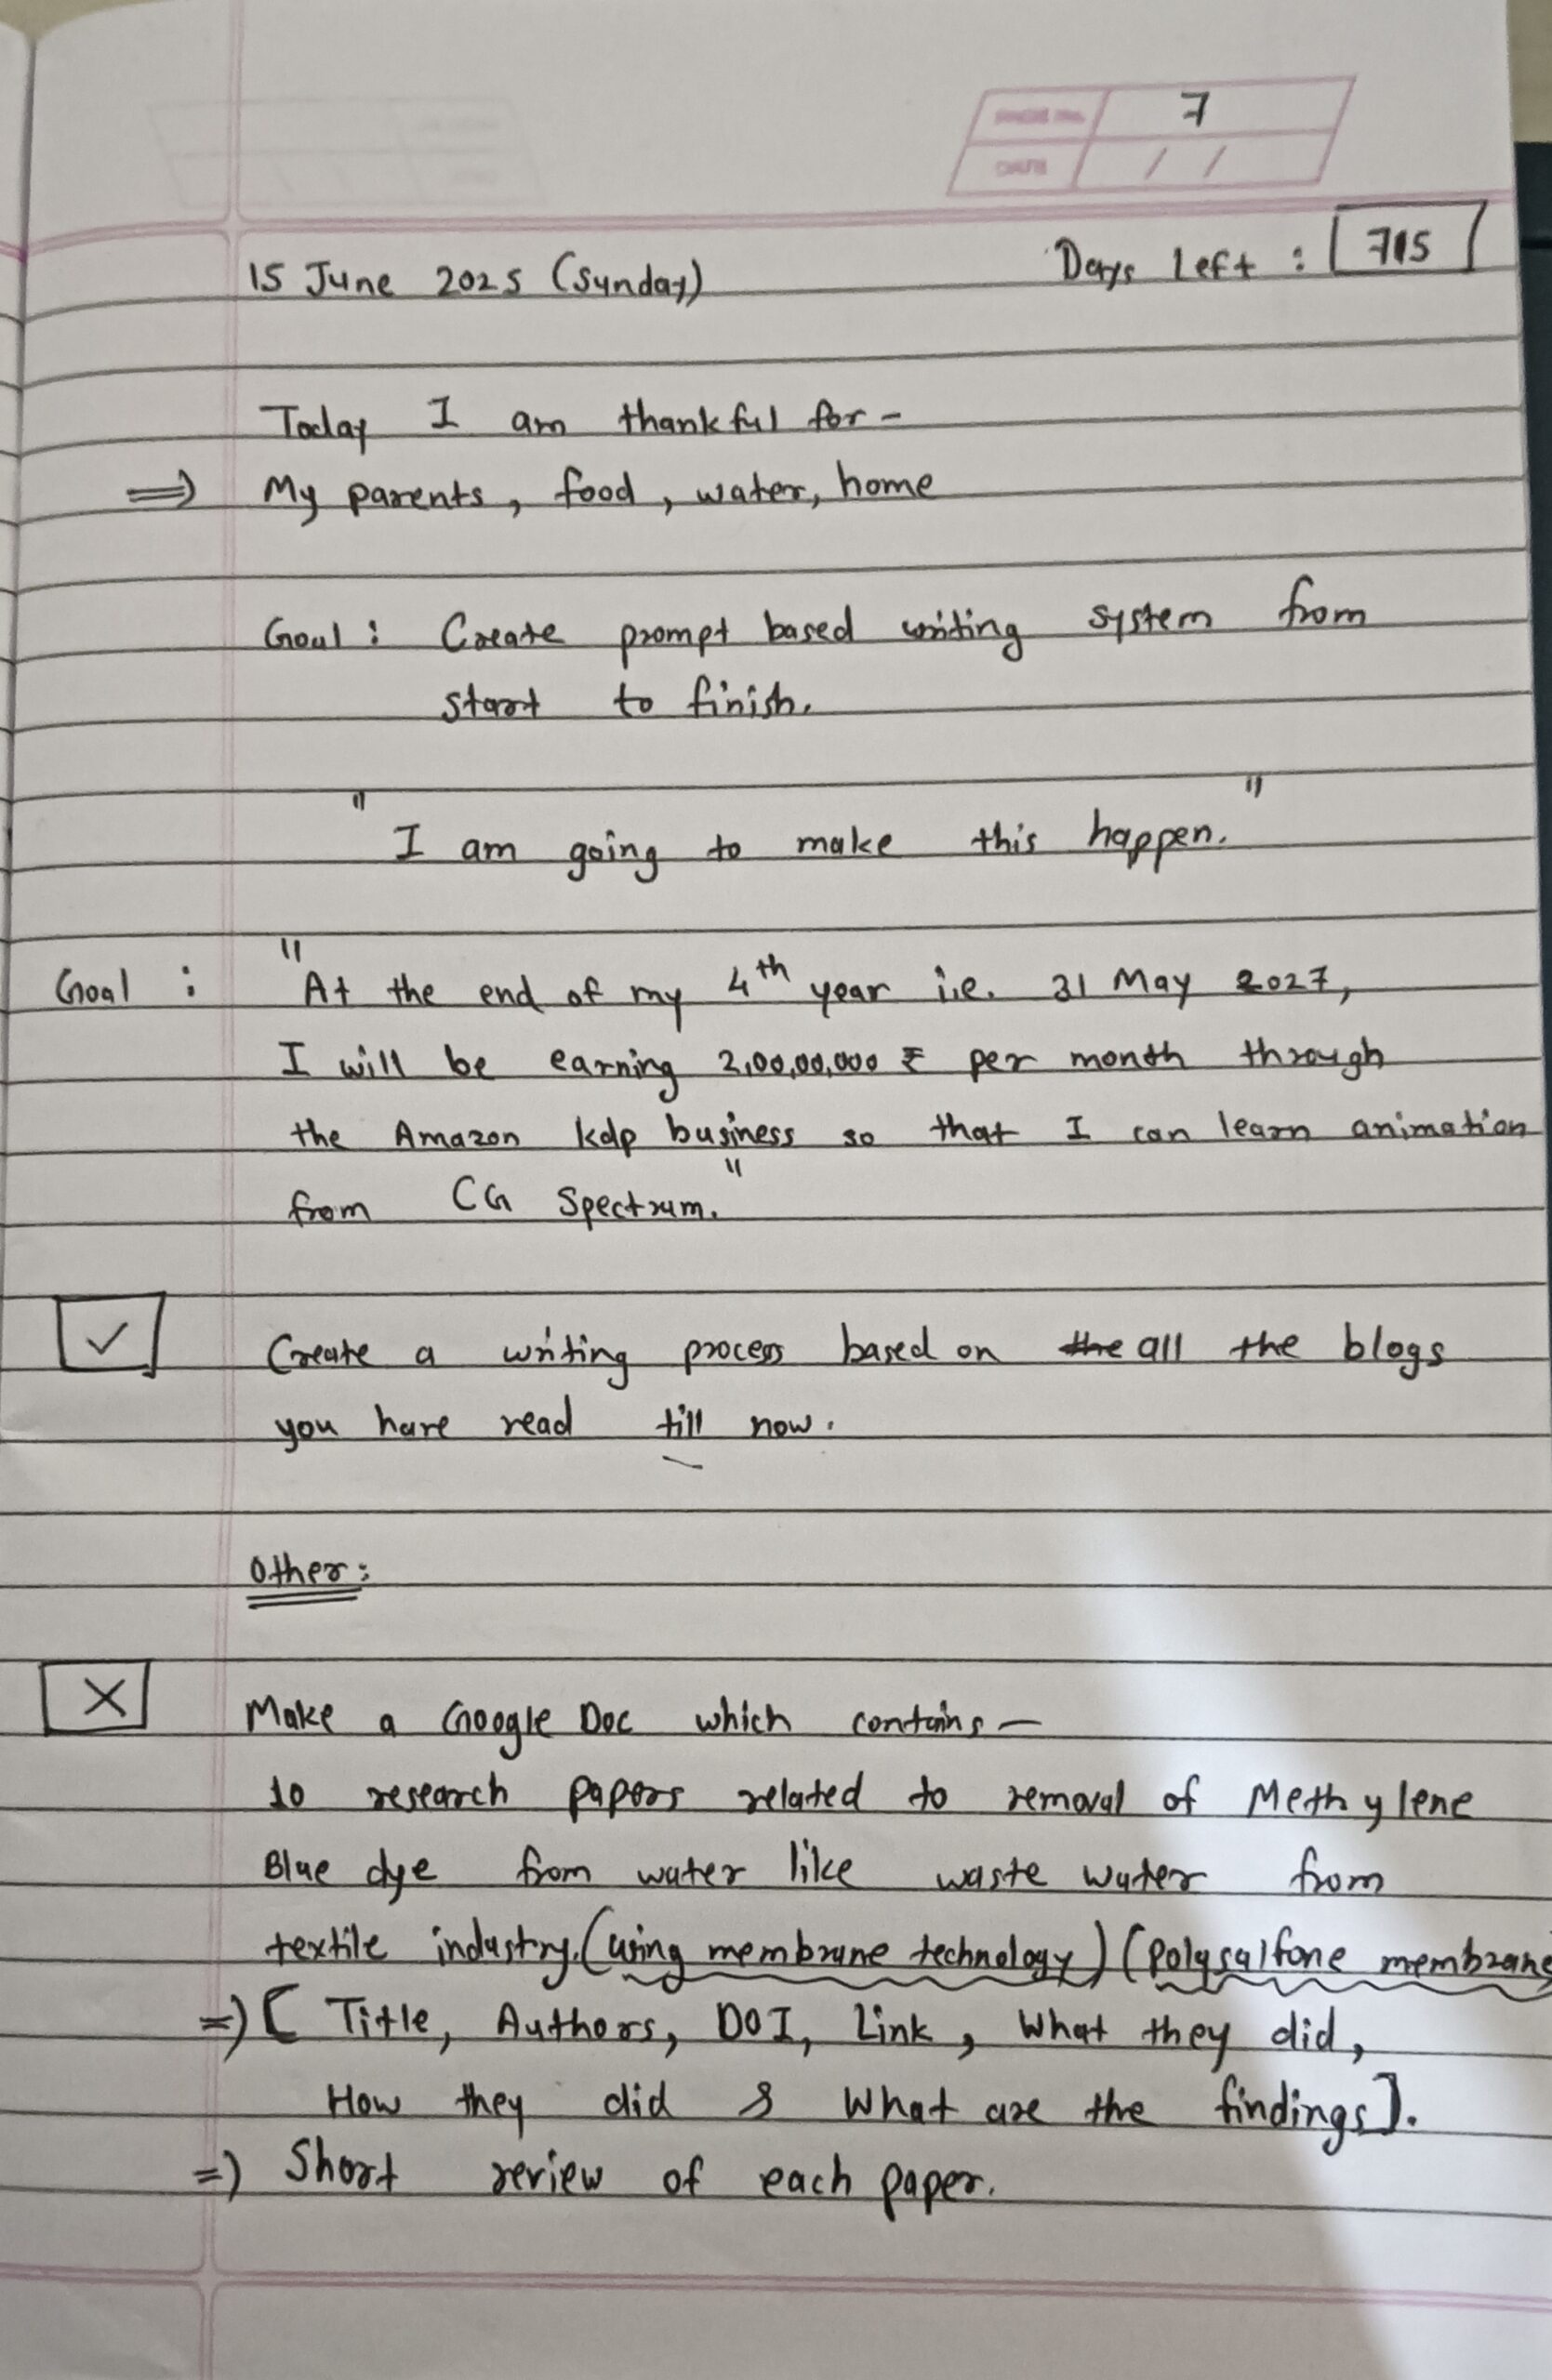 PAGE NO. 7
DATE / /
15 June 2025 (Sunday) Days left : 715
Today I am thankful for -
⇒ My parents, food, water, home
Goal : Create prompt based writing system from
start to finish.
" I am going to make this happen. "
Goal : "At the end of my 4th year i.e. 31 May 2027,
I will be earning 2,00,00,000 ₹ per month through
the Amazon kdp business so that I can learn animation
from CG Spectrum."
✓ Create a writing process based on the all the blogs
you have read till now.
Other :
X Make a Google Doc which contains —
10 research papers related to removal of Methylene
Blue dye from water like waste water from
textile industry. (using membrane technology) (polysulfone membrane
⇒ [ Title, Authors, DOI, Link, What they did,
How they did & What are the findings].
⇒ Short review of each paper.